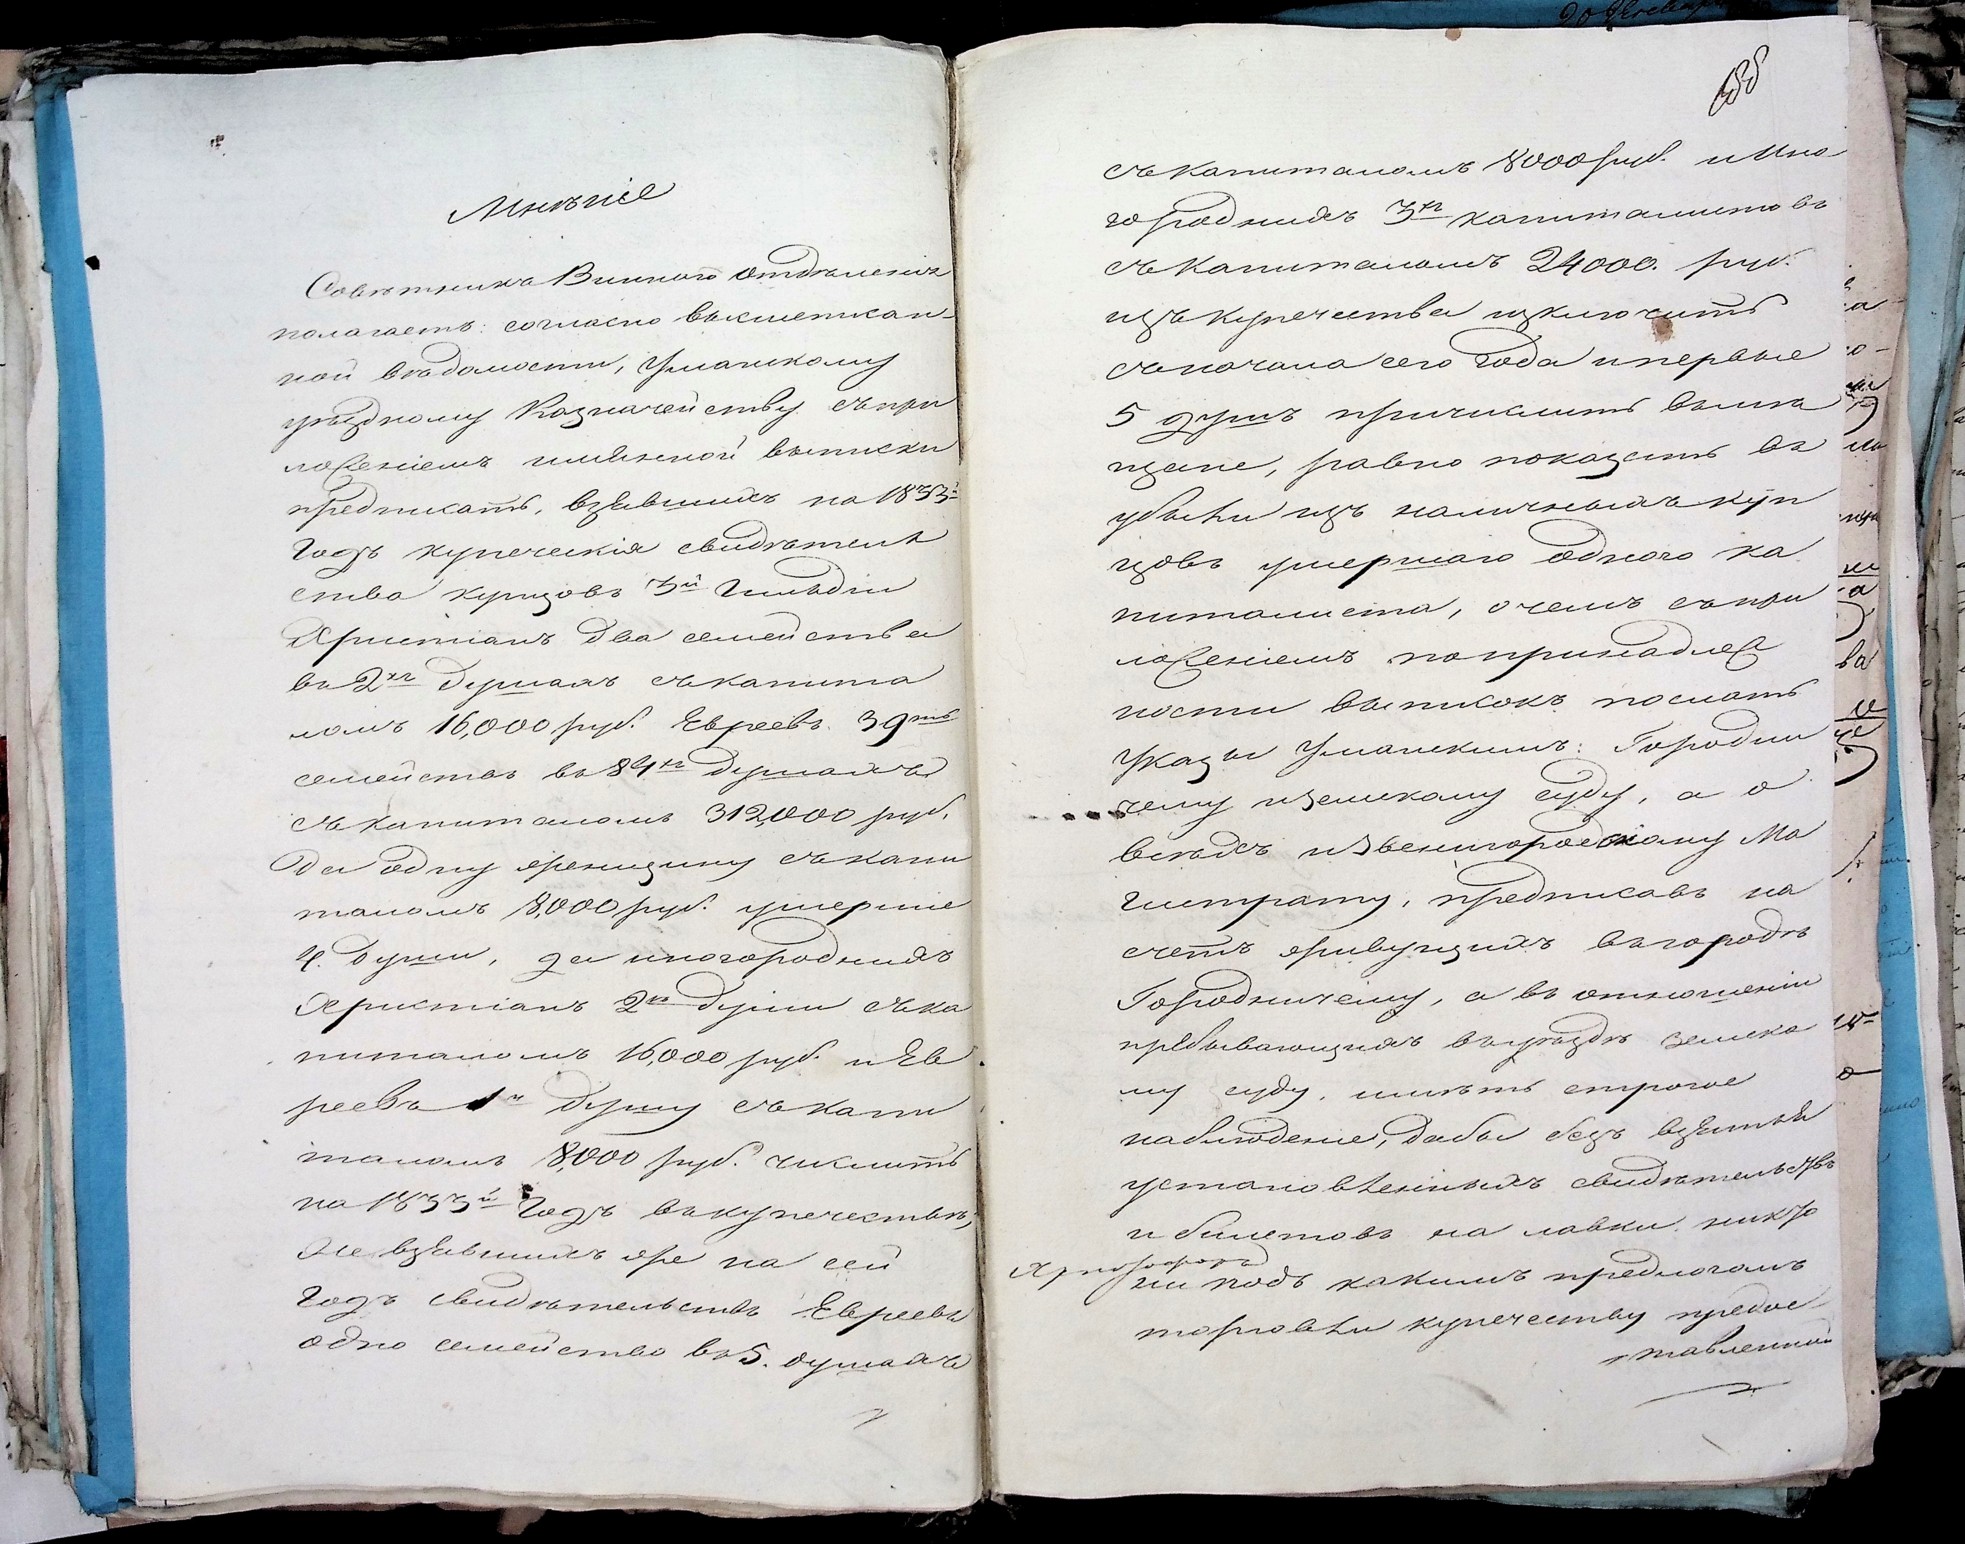 Мнѣніе
Совѣтникъ Виннаго Отдѣленія
полагаетъ: согласно вышеписан-
ной вѣдомости, Уманскому
уѣздному Казначейству съ при
ложеніемъ имянной выписки
предписать, взявшихъ на 1833й
годъ купеческія свидѣтель
ства купцовъ 3й Гильдіи
Христіанъ два семейства
въ 2хъ душахъ съ капита
ломъ 16,000 руб. Евреевъ 39ть
семействъ въ 84хъ душахъ
съ капиталомъ 312,000 руб.
да одну женщину съ капи
таломъ 8,000 руб. умершіе
4. души, да иногороднихъ
Христіанъ 2хъ души съ ка
питаломъ 16,000 руб. и Ев
реевъ 1у душу съ капи
таломъ 8,000 руб. числить
на 1833й годъ въ купечествѣ,
Не взявшихъ же на сей
годъ свидѣтельствъ Евреевъ
одно семейство въ 5. душахъ
съ капиталомъ 8000 руб. и Ино
городнихъ 3хъ капиталистовъ
съ капиталомъ 24000. руб.
изъ купечества изключить
съ начала сего года и первые
5 душъ причислить въ мѣ
щане, равно показать въ
убыли изъ наличныхъ куп
цовъ умершаго одного ка
питалиста, о чемъ съ при
ложеніемъ по принадлеж
ности выписокъ послать
Указы Уманскимъ: Городни
чему и Земскому суду, а о
всѣхъ и Звенигородскому Ма
гистрату, предписавъ на
счетъ живущихъ въ городѣ
Городничему, а въ отношеніи
пребывающихъ въ уѣздѣ земско
му суду, имѣть строгое
наблюденіе, дабы безъ взятья
установленныхъ свидѣтельствъ
и билетовъ на лавки никто
ни подъ какимъ предлогомъ
торговли купечеству предос-
тавленной